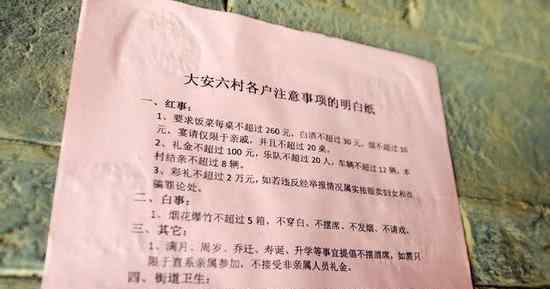 大安六村各户注意事项的明白纸
一、红事:
1、要求饭菜每桌不超过 260 元,白酒不超过 30 元,烟不超过 10
元,宴请仅限于亲戚,并且不超过 20 桌。
2、礼金不超过 100 元,乐队不超过 20 人,车辆不超过 12 辆,本
村结亲不超过 8 辆。
3、彩礼不超过 2 万元,如若违反经举报情况属实按贩卖妇女和诈
骗罪论处。
二、白事:
1、烟花爆竹不超过 5 箱,不穿白、不摆席、不发烟、不请戏。
三、其它:
1、满月、周岁、乔迁、寿诞、升学等事宜提倡不摆酒席,如需只
限于直系亲属参加,不接受非亲属人员礼金。
四、街道卫生: